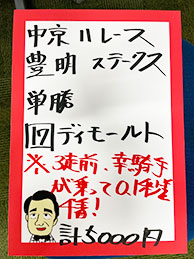 中京11レース
豊明ステークス
単勝
17ディモールト
※3走前、幸騎手
が乗って0.1秒差
4着!
計5000円